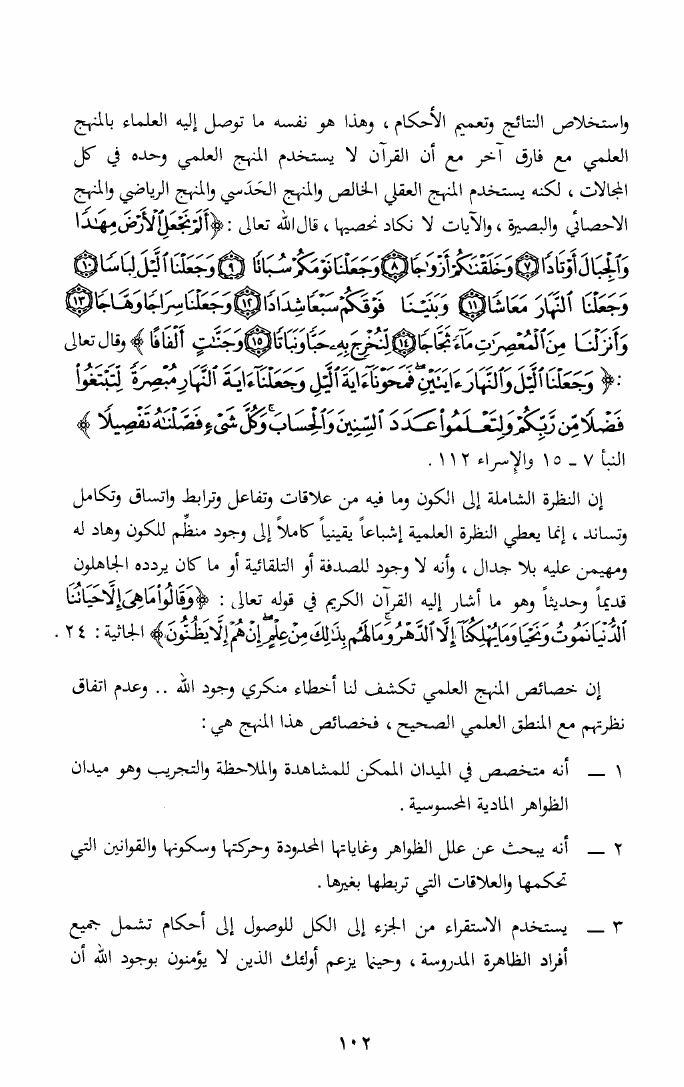 واستخلاص النتائج وتعميم الأحكام ، وهذا هو نفسه ما توصل إليه العلماء بالمنهج
العلمي مع فارق آخر مع أن القرآن لا يستخدم المنهج العلمي وحده في كل
المجالات ، لكنه يستخدم المنهج العقلي الخالص والمنهج الحَدَسي والمنهج الرياضي والمنهج
الاحصائي والبصيرة ، والآيات لا نكاد نحصيها ، قال الله تعالى : ﴿ أَلَمْ نَجْعَلِ الْأَرْضَ مِهَٰدًا
وَالْجِبَالَ أَوْتَادًا ﴿٧﴾ وَخَلَقْنَٰكُمْ أَزْوَٰجًا ﴿٨﴾ وَجَعَلْنَا نَوْمَكُمْ سُبَاتًا ﴿٩﴾ وَجَعَلْنَا الَّيْلَ لِبَاسًا ﴿١٠﴾
وَجَعَلْنَا النَّهَارَ مَعَاشًا ﴿١١﴾ وَبَنَيْنَا فَوْقَكُمْ سَبْعًا شِدَادًا ﴿١٢﴾ وَجَعَلْنَا سِرَاجًا وَهَّاجًا ﴿١٣﴾
وَأَنزَلْنَا مِنَ الْمُعْصِرَٰتِ مَآءً ثَجَّاجًا ﴿١٤﴾ لِّنُخْرِجَ بِهِۦ حَبًّا وَنَبَاتًا ﴿١٥﴾ وَجَنَّٰتٍ أَلْفَافًا ﴾ وقال تعالى
: ﴿ وَجَعَلْنَا الَّيْلَ وَالنَّهَارَ ءَايَتَيْنِ ۖ فَمَحَوْنَآ ءَايَةَ الَّيْلِ وَجَعَلْنَآ ءَايَةَ النَّهَارِ مُبْصِرَةً لِّتَبْتَغُوا۟
فَضْلًا مِّن رَّبِّكُمْ وَلِتَعْلَمُوا۟ عَدَدَ السِّنِينَ وَالْحِسَابَ ۚ وَكُلَّ شَىْءٍ فَصَّلْنَٰهُ تَفْصِيلًا ﴾
النبأ ٧ ـ ١٥ والإسراء ١١٢ .
إن النظرة الشاملة إلى الكون وما فيه من علاقات وتفاعل وترابط واتساق وتكامل
وتساند ، إنما يعطي النظرة العلمية إشباعاً يقينياً كاملاً إلى وجود منظِّم للكون وهاد له
ومهيمن عليه بلا جدال ، وأنه لا وجود للصدفة أو التلقائية أو ما كان يردده الجاهلون
قديماً وحديثاً وهو ما أشار إليه القرآن الكريم في قوله تعالى : ﴿ وَقَالُوا۟ مَا هِىَ إِلَّا حَيَاتُنَا
الدُّنْيَا نَمُوتُ وَنَحْيَا وَمَا يُهْلِكُنَآ إِلَّا الدَّهْرُ ۚ وَمَا لَهُم بِذَٰلِكَ مِنْ عِلْمٍ ۖ إِنْ هُمْ إِلَّا يَظُنُّونَ ﴾ الجاثية : ٢٤ .
إن خصائص المنهج العلمي تكشف لنا أخطاء منكري وجود الله .. وعدم اتفاق
نظرتهم مع المنطق العلمي الصحيح ، فخصائص هذا المنهج هي :
١ ــ أنه متخصص في الميدان الممكن للمشاهدة والملاحظة والتجريب وهو ميدان
الظواهر المادية المحسوسية .
٢ ــ أنه يبحث عن علل الظواهر وغاياتها المحدودة وحركتها وسكونها والقوانين التي
تحكمها والعلاقات التي تربطها بغيرها .
٣ ــ يستخدم الاستقراء من الجزء إلى الكل للوصول إلى أحكام تشمل جميع
أفراد الظاهرة المدروسة ، وحينما يزعم أولئك الذين لا يؤمنون بوجود الله أن
١٠٢